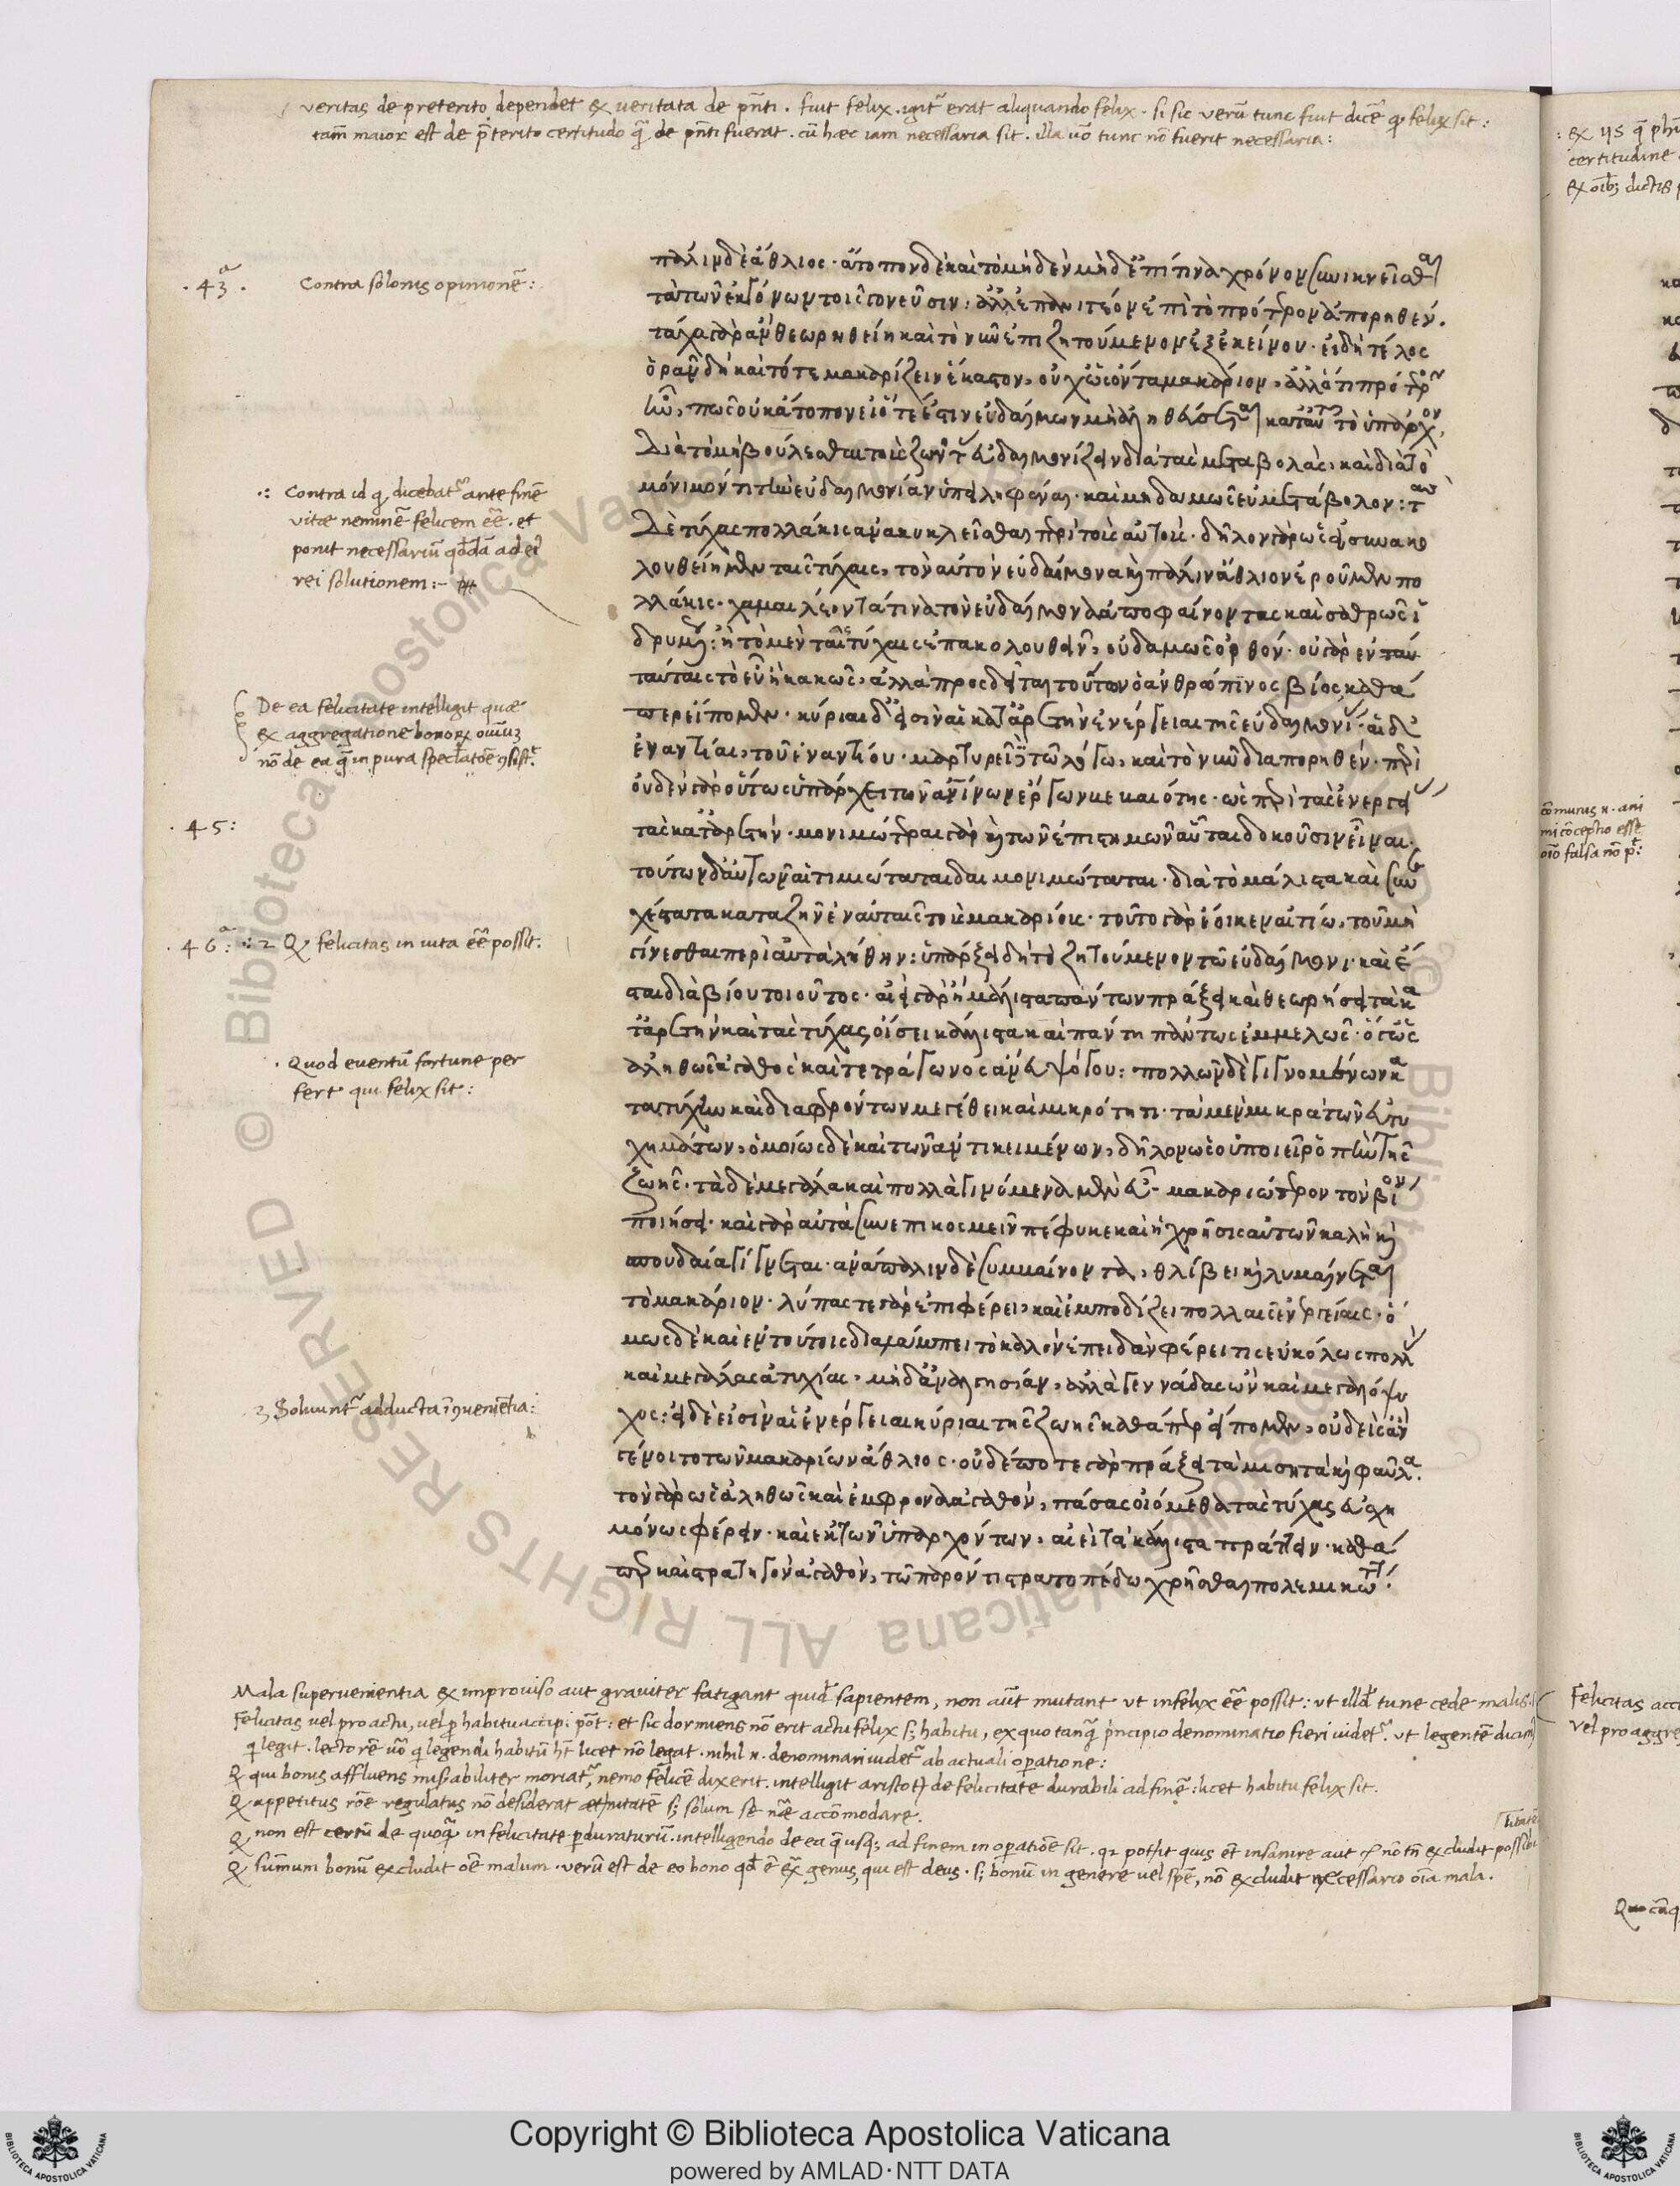 veritas de preterito dependet ex veritata de pñti . fuit felix . igit erat aliquando felix . si sic verũ tunc fuit dicẽ felix sit :
tam̃ maior est de p̃terito certitudo de pñti fuerat . cũ hæc iam necessaria sit . illa võ tunc nõ fuerit necessaria :
πάλιν δὲ ἄθλιος · ἄτοπον δὲ καὶ τὸ μηδὲν μηδ᾽ ἐπί τινα χρόνον συνικνεῖσθαι
τὰ τῶν ἐκγόνων τοῖς γονεῦσιν · ἀλλ᾽ ἐπανιτέον ἐπὶ τὸ πρότερον ἀπορηθέν .
τάχα γὰρ ἂν θεωρηθείη καὶ τὸ νῦν ἐπιζητούμενον ἐξ ἐκείνου · εἰ δὴ τέλος
ὁρᾶν δὴ καὶ τότε μακαρίζειν ἕκαστον, οὐχ ὡς ὄντα μακάριον, ἀλλ᾽ ὅτι πρότερον
ἦν, πῶς οὐκ ἄτοπον εἰ ὅτε ἔστιν εὐδαίμων μὴ ἀληθεύσεται κατ᾽ αὐτοῦ τὸ ὑπάρχον,
Διὰ τὸ μὴ βούλεσθαι τοὺς ζῶντας εὐδαιμονίζειν διὰ τὰς μεταβολάς, καὶ διὰ τὸ
μόνιμόν τι τὴν εὐδαιμονίαν ὑπειληφέναι · καὶ μηδαμῶς εὐμετάβολον : τὰς
Δὲ τύχας πολλάκις ἀνακυκλεῖσθαι περὶ τοὺς αὐτούς · δῆλον γὰρ ὡς εἰ συνακο
λουθείημεν ταῖς τύχαις, τὸν αὐτὸν εὐδαίμονα καὶ πάλιν ἄθλιον ἐροῦμεν πο
λλάκις · χαμαιλέοντά τινα τὸν εὐδαίμονα ἀποφαίνοντας καὶ σαθρῶς ἱ
δρυμένον : ἢ τὸ μὲν ταῖς τύχαις ἐπακολουθεῖν, οὐδαμῶς ὀρθόν · οὐ γὰρ ἐν ταυ
ταύταις τὸ εὖ ἢ κακῶς, ἀλλὰ προσδεῖται τούτων ὁ ἀνθρώπινος βίος καθά
περ εἴπομεν · κύριαι δ᾽ εἰσὶν αἱ κατ᾽ ἀρετὴν ἐνέργειαι τῆς εὐδαιμονίας · αἱ δ᾽
ἐναντίαι, τοῦ ἐναντίου · μαρτυρεῖ δὲ τῷ λόγῳ, καὶ τὸ νῦν διαπορηθέν · περὶ
οὐδὲν γὰρ οὕτως ὑπάρχει τῶν ἀνθρωπίνων ἔργων βεβαιότης · ὡς περὶ τὰς ἐνεργείας
τὰς κατ᾽ ἀρετήν · μονιμώτεραι γὰρ καὶ τῶν ἐπιστημῶν αὗται δοκοῦσιν εἶναι .
τούτων δ᾽ αὐτῶν αἱ τιμιώταται δαι μονιμώταται · διὰ τὸ μάλιστα καὶ συν
χέστατα καταζῆν ἐν αὐταῖς τοὺς μακαρίους · τοῦτο γὰρ ἔοικεν αἰτίῳ, τοῦ μὴ
γίνεσθαι περὶ αὐτὰ λήθην : ὑπάρξει δὴ τὸ ζητούμενον τῷ εὐδαίμονι · καὶ ἔ
σται διὰ βίου τοιοῦτος · αἰεὶ γὰρ ἢ μάλιστα πάντων πράξει καὶ θεωρήσει τὰ κα
τ᾽ ἀρετὴν καὶ τὰς τύχας οἴσει κάλλιστα καὶ πάντῃ πάντως ἐμμελῶς · ὅ γ᾽ ὡς
ἀληθῶς ἀγαθὸς καὶ τετράγωνος ἄνευ ψόγου : πολλῶν δὲ γιγνομένων κα
τὰ τύχην καὶ διαφερόντων μεγέθει καὶ μικρότητι · τὰ μὲν μικρὰ τῶν εὐτυ
χημάτων, ὁμοίως δὲ καὶ τῶν ἀντικειμένων, δῆλον ὡς οὐ ποιεῖ ῥοπὴν τῆς
ζωῆς · τὰ δὲ μεγάλα καὶ πολλὰ γινόμενα μὲν εὖ - μακαριώτερον τὸν βίον
ποιήσει · καὶ γὰρ αὐτὰ συνεπικοσμεῖν πέφυκε καὶ ἡ χρῆσις αὐτῶν καλὴ καὶ
σπουδαία γίγνεται · ἀνάπαλιν δὲ συμβαίνοντα, θλίβει καὶ λυμαίνεται
τὸ μακάριον · λύπας τε γὰρ ἐπιφέρει, καὶ ἐμποδίζει πολλαῖς ἐνεργείαις · ὅ
μως δὲ καὶ ἐν τούτοις διαλάμπει τὸ καλὸν ἐπειδὰν φέρει τις εὐκόλως πολλὰς
καὶ μεγάλας ἀτυχίας, μὴ δι᾽ ἀναλγησίαν, ἀλλὰ γεννάδας ὢν καὶ μεγαλόψυ
χος : εἰ δὲ εἰσὶν αἱ ἐνέργειαι κύριαι τῆς ζωῆς καθάπερ εἴπομεν, οὐδεὶς ἂν
γένοιτο τῶν μακαρίων ἄθλιος · οὐδέποτε γὰρ πράξει τὰ μισητὰ καὶ φαῦλα .
τὸν γὰρ ὡς ἀληθῶς καὶ ἔμφρονα ἀγαθὸν, πάσας οἰόμεθα τὰς τύχας εὐσχη
μόνως φέρειν · καὶ ἐκ τῶν ὑπαρχόντων, αἰεὶ τὰ κάλλιστα πράττειν · καθά
περ καὶ στρατηγὸν ἀγαθὸν, τῷ παρόντι στρατοπέδῳ χρῆσθαι πολεμικώτατα :
· 43 .ª
Contra solonis opinionẽ :
·: Contra id q dicebat ante finẽ
vitæ neminẽ felicem eẽ . et
ponit necessariũ qdda ad ei
rei solutionem :-
De ea felicitate intelligit quæ
ex aggregatione bonorꝝ
nõ de ea in pura
· 45 :
· 46ª : ·: 2 Q felicitas in vita eẽ possit .
· Quod eventũ fortune per
fert qui felix sit :
3 Solvunt adducta
Mala supervenientia ex improviso aut graviter fatigant quid sapientem, non aut mutant ut infelix eẽ possit : ut illd tu ne cede malis .
Felicitas vel pro actu, vel p habitu accipi põt : et sic dormiens nõ erit actu felix s; habitu, ex quo tanq p̃ncipio denominatio fieri videt . ut legentẽ
q legit . lectorẽ võ q legendi habitũ ht licet nõ legat . nihil n . denominari videt ab actuali operatione :
Q qui bonis affluens misabiliter moriat, nemo felicẽ dixerit . intelligit aristot de felicitate durabili ad finẽ : licet habitu felix sit .
Q appetitus rõe regulatus nõ desiderat s; solum se accõmodare .
Q non est certũ de quoq in felicitate pduraturũ . intelligendo de ea q usq; ad finem in operatiõe sit . q2 possit quis et insanire aut nõ tñ excludit
Q summum bonũ excludit oẽ malum . verũ est de eo bono qd ẽ ex genus, qui est deus . s; bonũ in genere vel spẽ, nõ excludit necessario oĩa mala .
: ex ijs q
certitudine
ex oĩb; dictis
cõmunis n . ani
mi cõceptio esse
oĩo falsa nõ p̃t :
Felicitas acc
Vel pro aggre
© Biblioteca Apostolica Vaticana ALL RIGHTS RESERVED
Copyright © Biblioteca Apostolica Vaticana
powered by AMLAD·NTT DATA
BIBLIOTECA APOSTOLICA VATICANA
BIBLIOTECA APOSTOLICA VATICANA